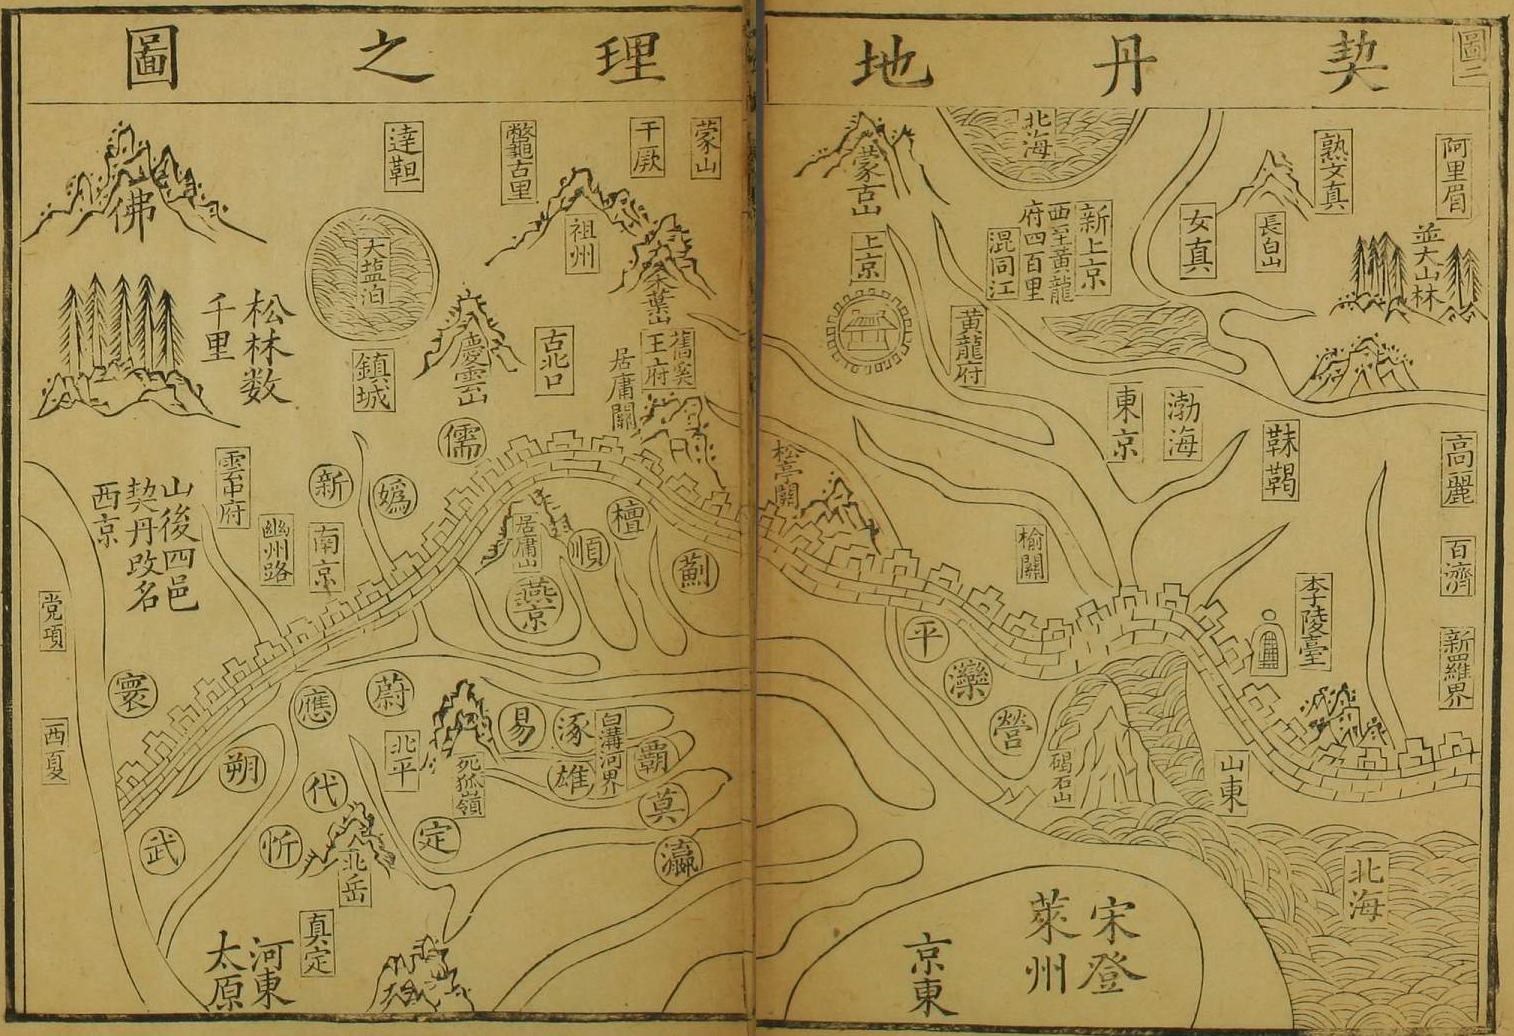 契丹地理之圖
圖二
阿里眉
熟女真
長白山
並大山林
女真
北海
新上京
西至黃龍
府四百里
混同江
蒙古山
上京
黃龍府
渤海
東京
靺鞨
高麗
百濟
新羅界
李陵臺
榆關
松亭關
平
灤
營
碣石山
山東
北海
宋登
萊州
京東
蒙山
干厥
鼈古里
達靼
祖州
木葉山
舊奚
王府
居庸關
古北口
慶雲山
大塩泊
鎮城
佛
松林数
千里
儒
媯
新
檀
順
薊
居庸山
燕京
南京
幽州路
雲中府
山後四邑
契丹改名
西京
党項
西夏
寰
應
蔚
朔
武
代
忻
北平
死狐嶺
易
涿
白溝河界
雄
霸
莫
瀛
定
北岳
真定
河東
太原